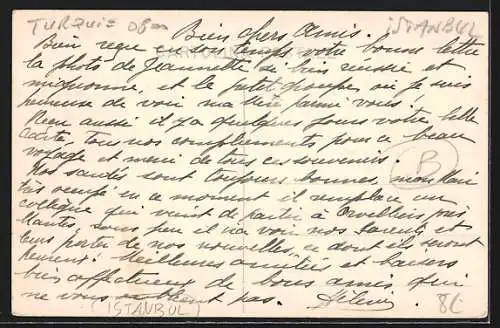 TURQUIE
ISTANBUL
Bien chers Amis.
Bien reçu en son temps votre bonne lettre
la photo de Jeannette si bien réussie et
mignonne, et le petit groupe où je suis
heureuse de voir ma parmi vous.
Reçu aussi il y a quelques jours votre belle
carte, tous nos compliments pour ce beau
voyage et merci de tous ces souvenirs.
Nos santés sont toujours bonnes, mon Mari
très occupé en ce moment il remplace un
collègue qui vient de partir à près
Mantes, sous peu il ira voir nos Parents et
leur porter de nos nouvelles, ce dont ils seront
heureux. Meilleures amitiés et baisers
bien affectueux de vos amis qui
ne vous oublient pas.
B
(ISTANBUL)